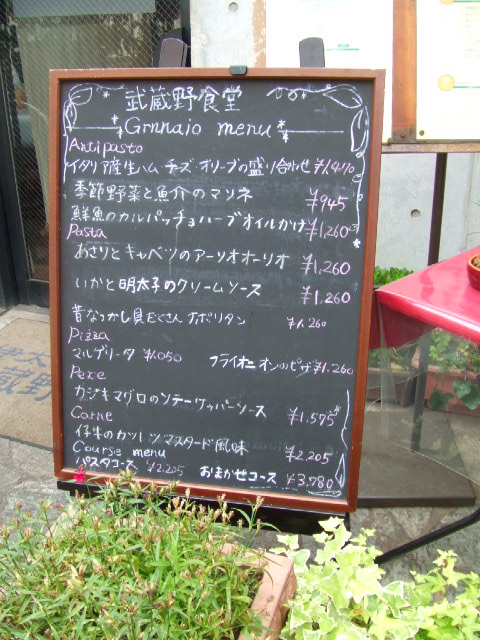 武蔵野食堂
Grnnaio menu
Antipasto
イタリア産生ハム チーズ オリーブの盛り合わせ ¥1,470
季節野菜と魚介のマリネ ¥945
鮮魚のカルパッチョハーブオイルかけ ¥1,260
Pasta
あさりとキャベツのアーリオオーリオ ¥1,260
いかと明太子のクリームソース ¥1,260
昔なつかし具だくさんナポリタン ¥1,260
Pizza
マルゲリータ ¥1,050 フライオニオンのピザ ¥1,260
Pexe
カジキマグロのソテーケッパーソース ¥1,575
Carne
仔牛のカツレツマスタード風味 ¥2,205
Course menu
パスタコース ¥2,205 おまかせコース ¥3,780